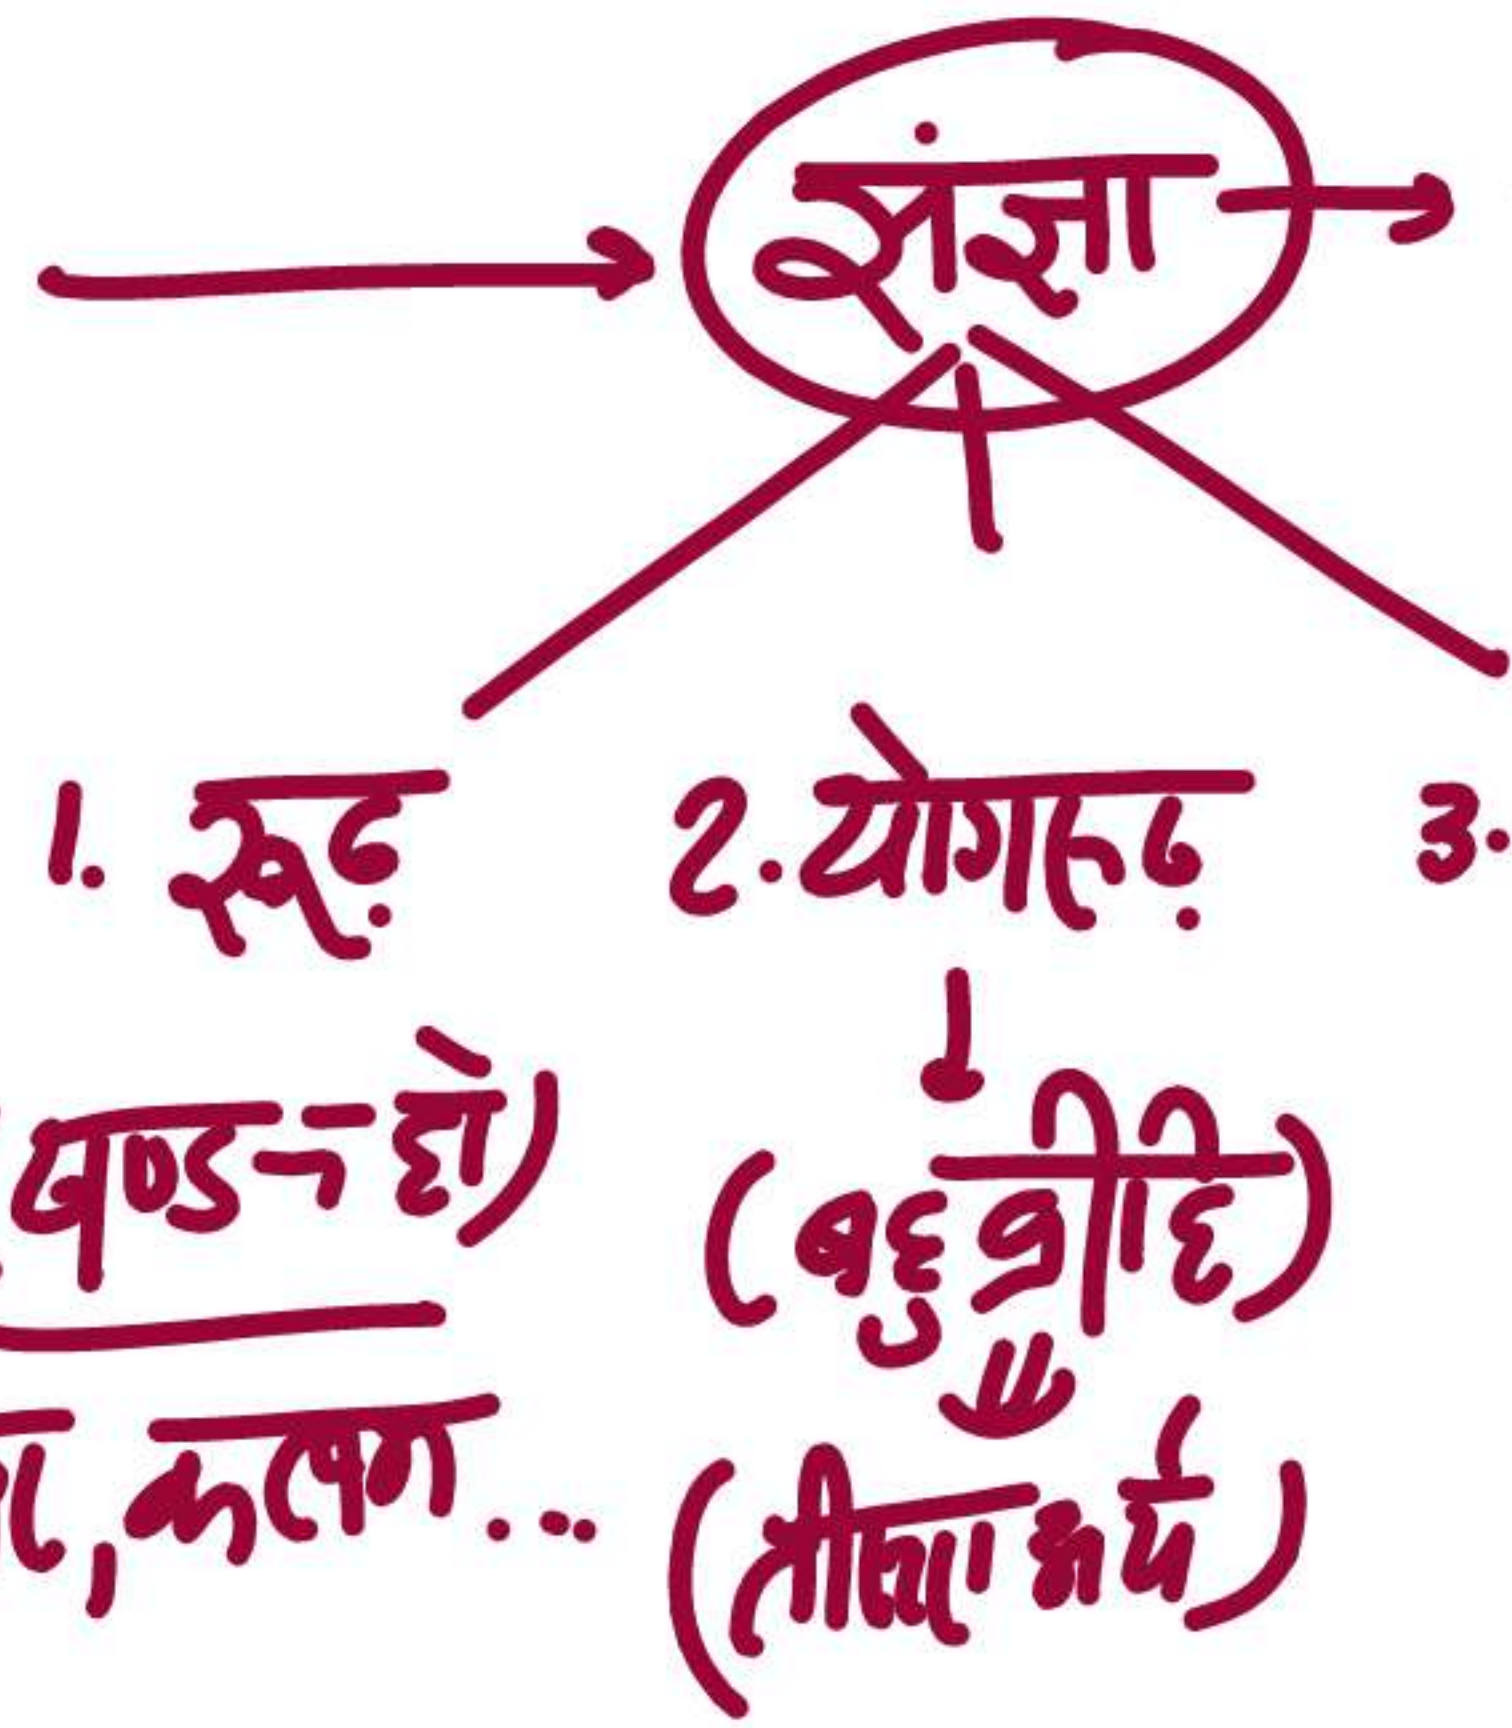 संज्ञा
1. रूढ़ 2. योगरूढ़ 3.
(खण्ड न हो) (बहुव्रीहि)
, कलम... (तीसरा अर्थ)